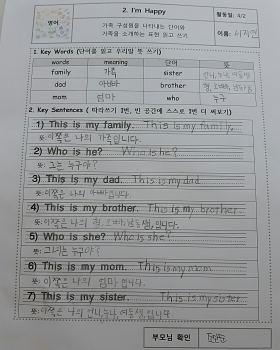 영어
2. I'm Happy
활동일: 4/2
가족 구성원을 나타내는 단어와
가족을 소개하는 표현 읽고 쓰기
이름:
1. Key Words (단어를 읽고 우리말 뜻 쓰기)
words meaning 단어 뜻
family 가족 sister 언니, 누나, 여동생
dad 아빠 brother 형, 오빠, 남동생
mom 엄마 who 누구
2. Key Sentences ( 따라쓰기 1번, 빈 공간에 스스로 1번 더 써보기)
1) This is my family. This is my family.
뜻: 이쪽은 나의 가족입니다.
2) Who is he? Who is he?
뜻: 그는 누구야?
3) This is my dad. This is my dad
뜻: 이쪽은 나의 아빠입니다.
4) This is my brother. This is my brother.
뜻: 이쪽은 나의 형, 오빠, 남동생입니다.
5) Who is she? Who is she?
뜻: 그녀는 누구야?
6) This is my mom. This is my mom.
뜻: 이쪽은 나의 엄마입니다.
7) This is my sister. This is my sister.
뜻: 이쪽은 나의 언니, 누나, 여동생입니다.
부모님 확인